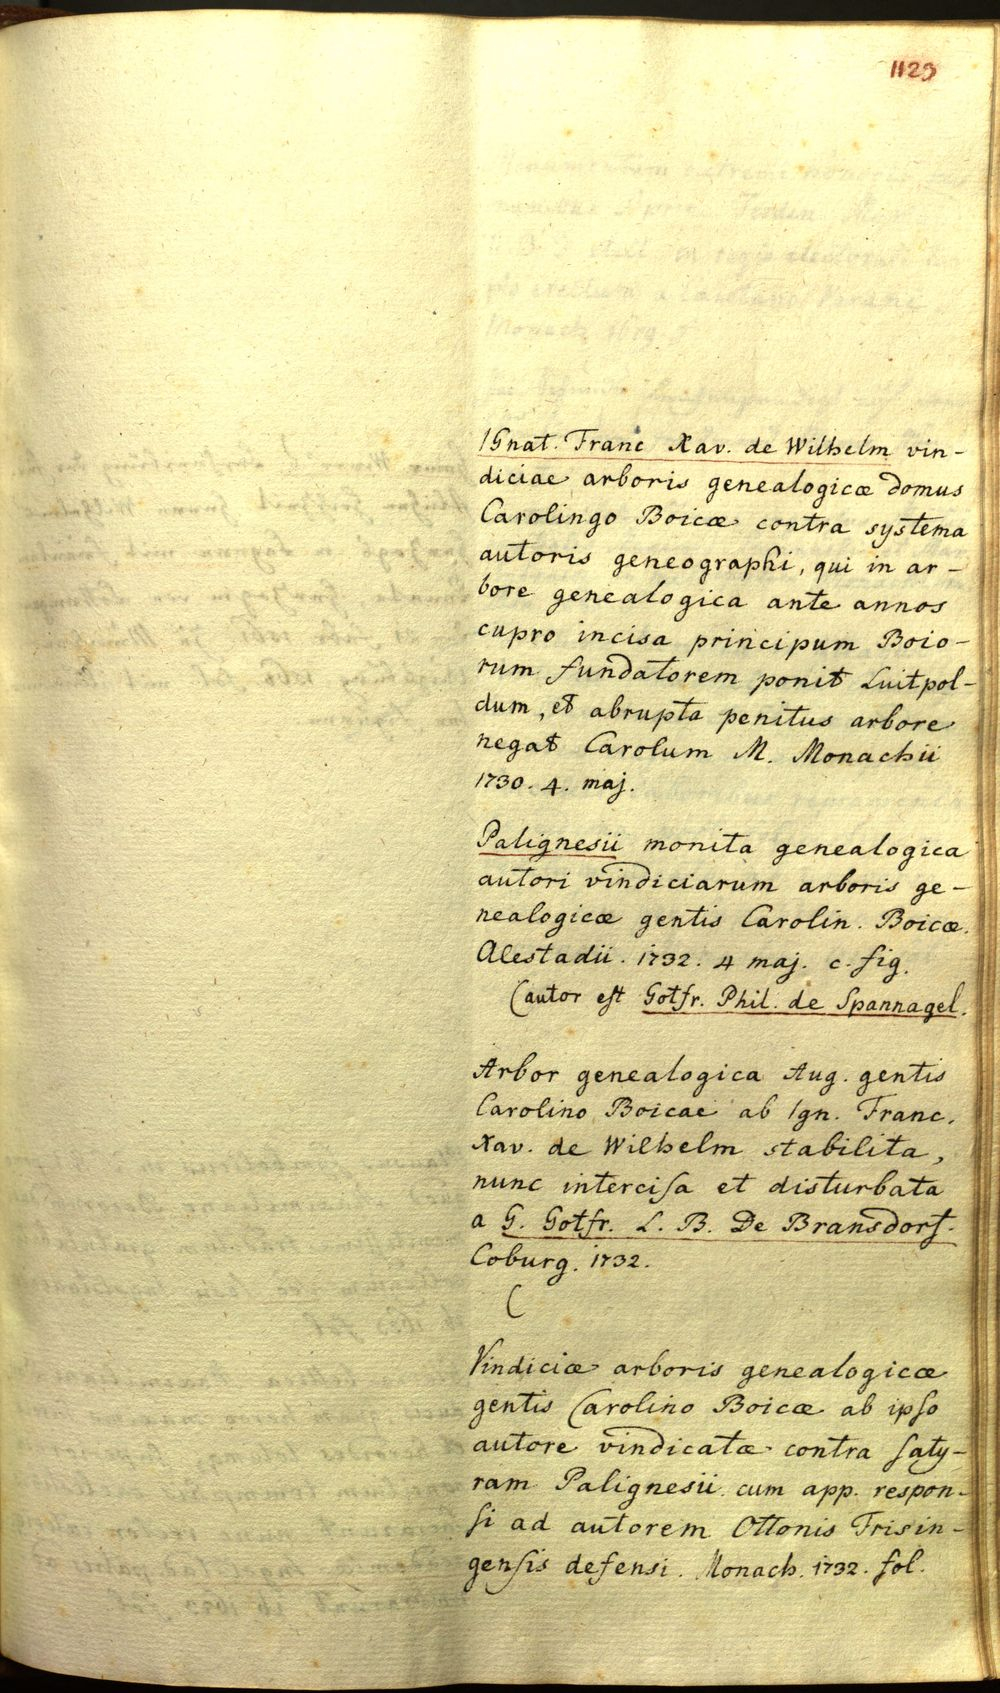 1129
Ignat. Franc Xav. de Wilhelm vin-
diciae arboris genealogicæ domus
Carolingo Boicæ contra systema
autoris geneographi, qui in ar-
bore genealogica ante annos
cupro incisa principum Boio-
rum fundatorem ponit Luitpol-
dum, et abrupta penitus arbore
negat Carolum M. Monachii
1730. 4. maj.
Palignesii monita genealogica
autori vindiciarum arboris ge-
nealogicæ gentis Carolin. Boicæ.
Alestadii. 1732. 4 maj. c. fig.
(autor est Gotfr. Phil. de Spannagel.
Arbor genealogica Aug. gentis
Carolino Boicae ab Ign. Franc.
Xav. de Wilhelm stabilita,
nunc interciſa et disturbata
a G. Gotfr. L. B. De Bransdorf.
Coburg. 1732.
(
Vindiciæ arboris genealogicæ
gentis Carolino Boicæ ab ipſo
autore vindicatæ contra ſaty-
ram Palignesii cum app. respon-
ſi ad autorem Ottonis Frisin-
genſis defensi. Monach. 1732. fol.